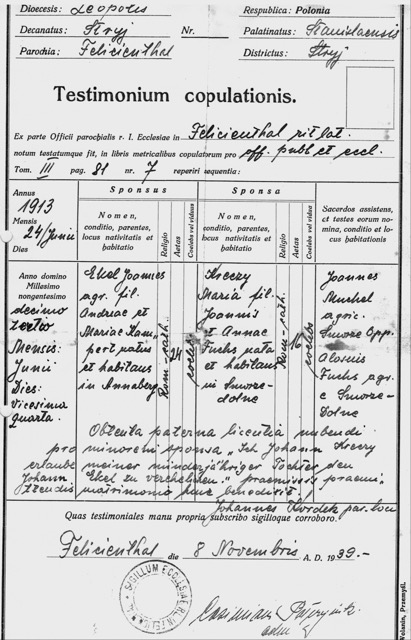 Dioecesis: Leopolis Respublica: Polonia
Decanatus: Stryj Nr. Palatinatus: Stanislaensis
Parochia: Felicienthal Districtus: Stryj
Testimonium copulationis.
Ex parte Officii parochialis r. l. Ecclesiae in Felicienthal rit lat.
notum testatumque fit, in libris metricalibus copulatorum pro off. publ et eccl.
Tom. III pag. 81 nr. 7 reperiri sequentia:
Annus
1913
Mensis
24/Junii
Dies
Sponsus
Nomen,
conditio, parentes,
locus nativitatis et
habitatio
Religio
Aetas
Coelebs vel viduus
Sponsa
Nomen,
conditio, parentes,
locus nativitatis et
habitatio
Religio
Aetas
Coelebs vel vidua
Sacerdos assistens,
et testes eorum no-
mina, conditio et lo-
cus habitationis
Anno domino
Millesimo
nongentesimo
decimo
tertio
Mensis:
Junii
Dies:
Vicesima
quarta.
Ekel Joannes
agr. fil.
Andreae et
Mariae Kam
pert natus
et habitans
in Annaberg
Rom-cath.
24
coelebs
Kreczy
Maria fil.
Joannis
et Annae
Fuchs nata
et habitans
in Smorze-
dolne
Rom-cath.
16
coelebs
Joannes
Munkel
agric.
Smorze Opp.
Aloisius
Fuchs agr.
e Smorze-
Dolne
Obtenta paterna licentia nubendi
pro minorem sponsa "Ich Johann Kreczy
erlaube meiner minderjähriger Tochter den
Johann Ekel zu verehelichen." praemissis praemi-
ttendis matrimonio hunc benedixit.
Johannes Kordek par. loci
Quas testimoniales manu propria subscribo sigilloque corroboro.
Felicienthal die 8 Novembris A. D. 1939.-
SIGILLUM ECCLESIAE
Casimirus
adm.